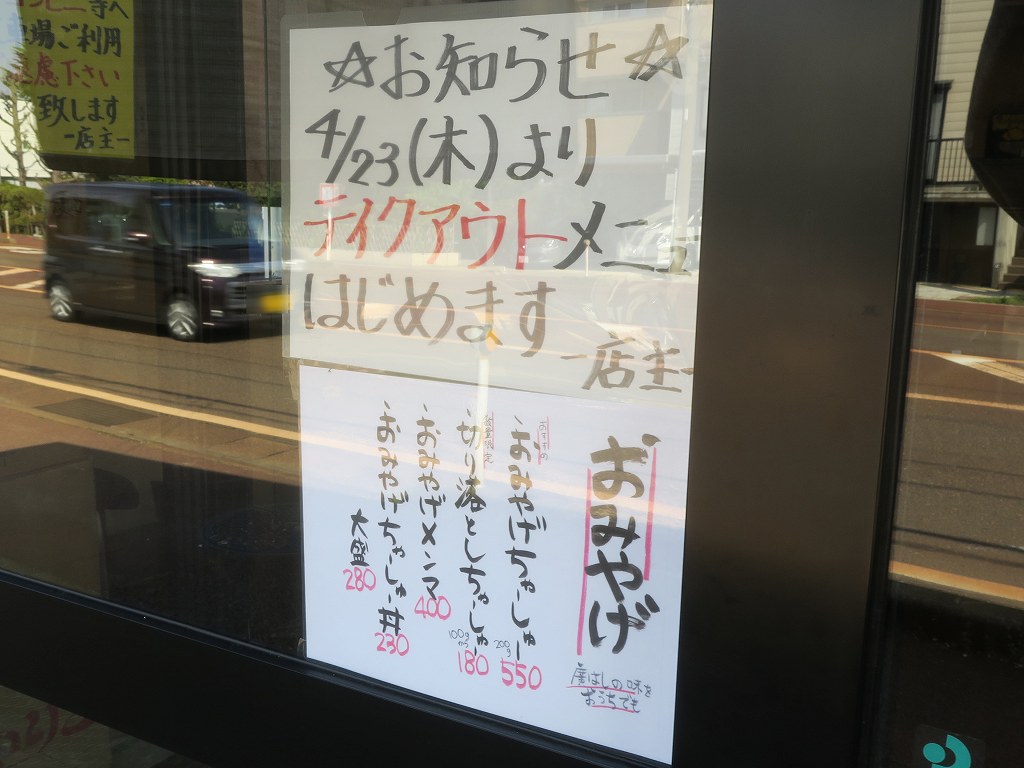 ☆お知らせ☆
4/23(木)より
テイクアウトメニュ
はじめます
ー店主ー
おみやげ
の味を
おうちでも
おすすめ
・おみやげちゃーしゅー
200g
550
数量限定
・切り落としちゃーしゅー
100g
180
・おみやげメンマ
400
・おみやげちゃーしゅー丼
230
大盛
280
寺へ
場ご利用
慮下さい
致します
ー店主ー